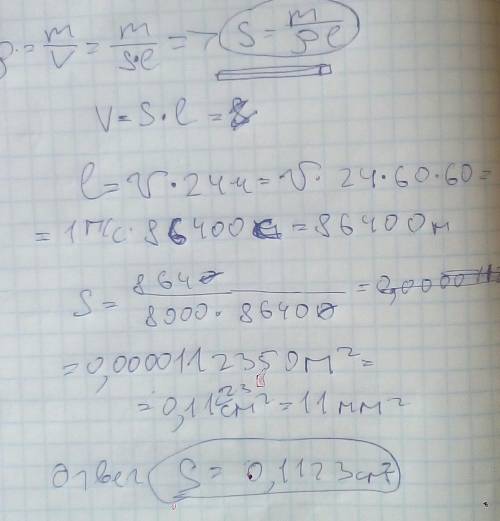 ρ = m/V = m/(S·l) => S = m/(ρl)
V = S·l =
l = v·24ч = v·24·60·60 =
= 1м/с·86400 = 86400м
S = 8640/(8900·86400) =
= 0,0000112350м² =
= 0,1123см² = 11мм²
Ответ S = 0,1123см²